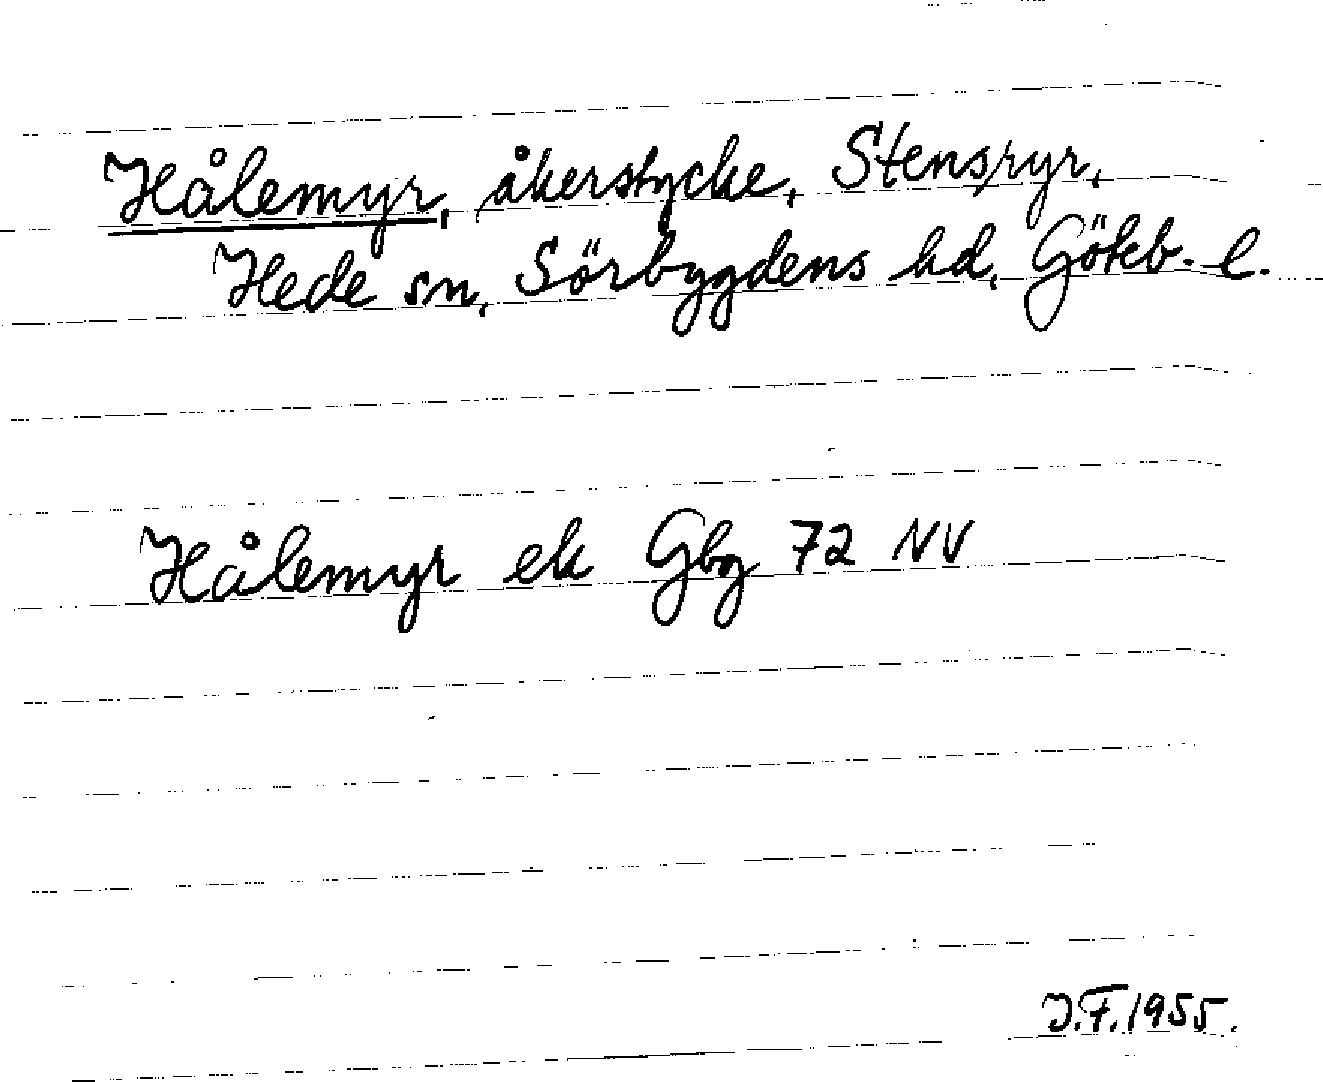 Hålemyr, åkerstycke, Stensryr,
Hede sn, Sörbygdens hd, Göteb. l.
Hålemyr ek Gbg 72 NV
J.F. 1955.